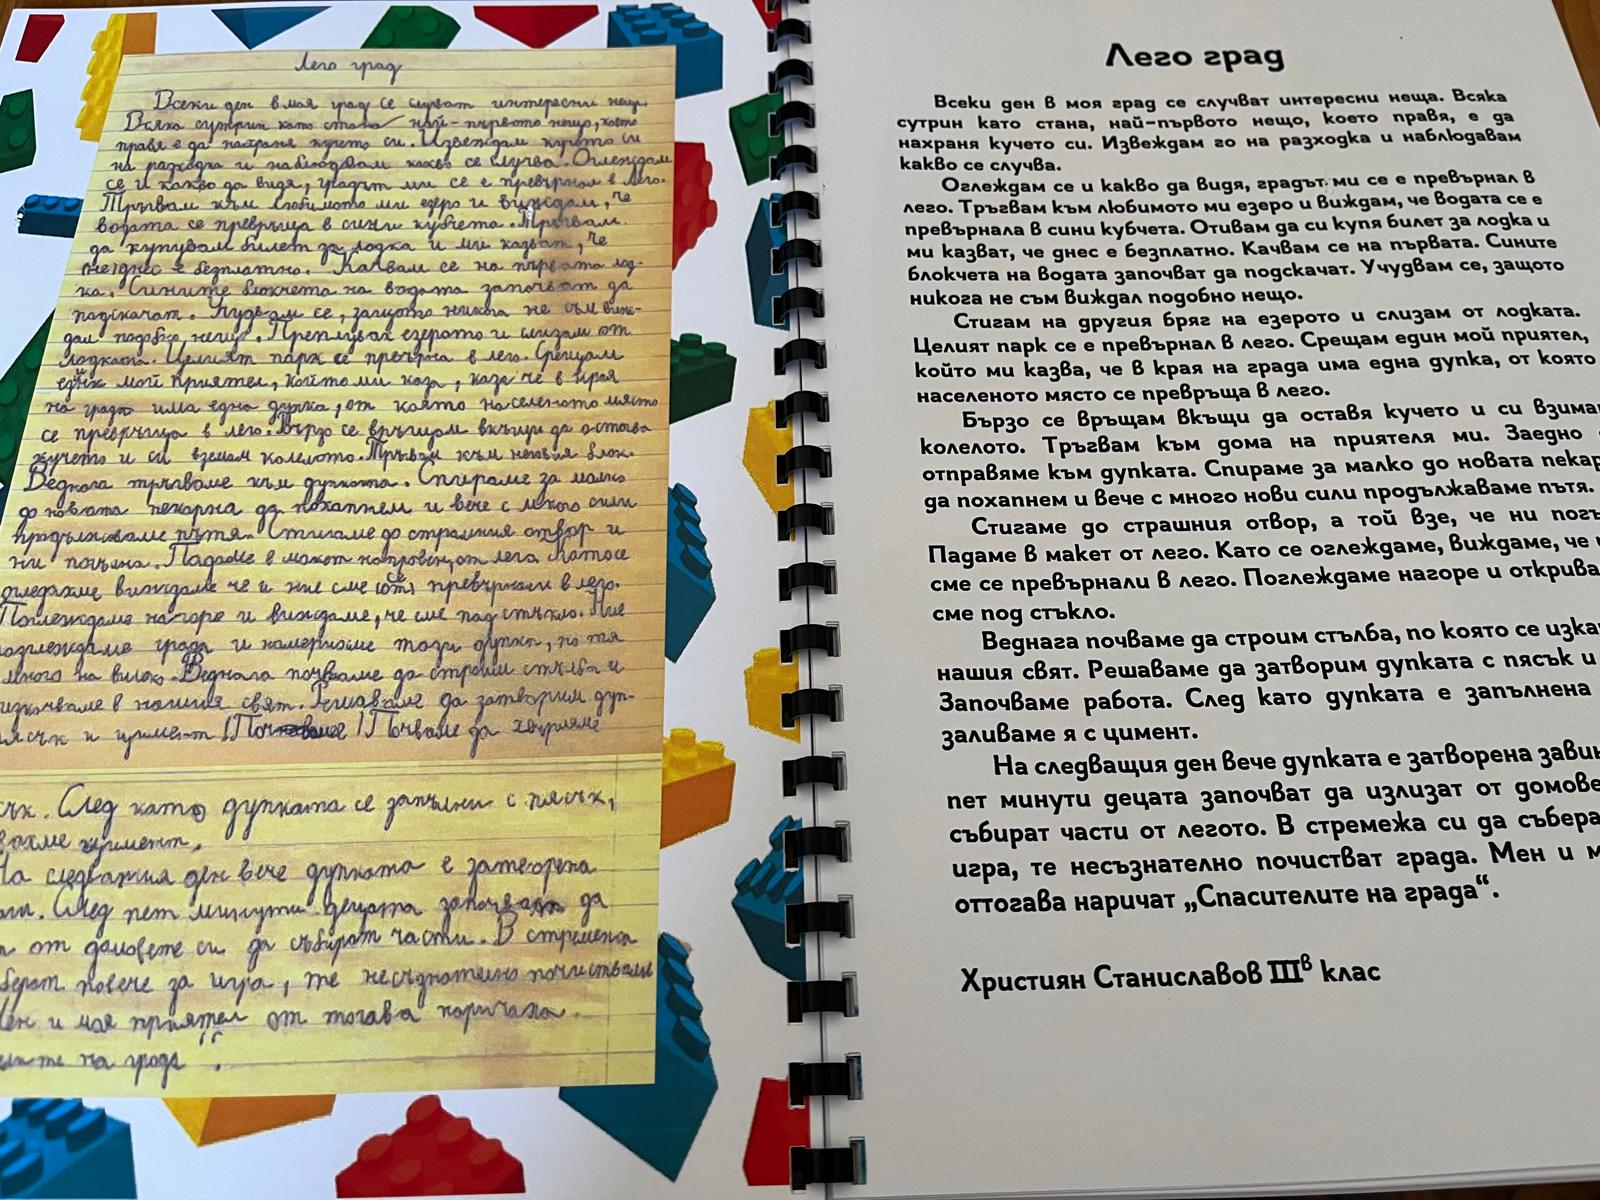 Лего град
Всеки ден в моя град се случват интересни неща.
Всяка сутрин като стана най-първото нещо, което
правя е да нахраня кучето си. Извеждам кучето си
на разходка и наблюдавам какво се случва. Оглеждам
се и какво да видя, градът ми се е превърнал в лего.
Тръгвам към любимото ми езеро и виждам, че
водата се превръща в сини кубчета. Тръгвам
да купувам билет за лодка и ми казват, че
днес е безплатно. Качвам се на първата лод-
ка. Сините блокчета на водата започват да
подскачат. Чудвам се, защото никога не съм виж-
дал подобно нещо. Преплувах езерото и слизам от
лодката. Целият парк се превърна в лего. Срещам
един мой приятел, който ми каза, каза че в края
на града има една дупка, от която населеното място
се превръща в лего. Бързо се връщам вкъщи да оставя
кучето и си вземам колелото. Тръгвам към неговия блок.
Веднага тръгваме към дупката. Спираме за малко
до новата пекарна да похапнем и вече с много сили
продължаваме пътя. Стигаме до страшния отвор и
ни погълна. Падаме в макет направен от лего. Като се
огледахме виждаме че и ние сме се превърнали в лего.
Поглеждаме нагоре и виждаме, че сме под стъкло. Ние
града и намерихме тази дупка, но тя
много на високо. Веднага почваме да строим стълба и
в нашия свят. Решаваме да затворим дуп-
и цимент Почваме да хвърляме
След като дупката се запълни с пясък,
цимент.
На следващия ден вече дупката е затворена
След пет минути децата започват да
от домовете си да събират части. В стремежа
повече за игра, те несъзнателно почистват
и моя приятел от тогава наричаха
на града“.
Лего град
Всеки ден в моя град се случват интересни неща. Всяка
сутрин като стана, най-първото нещо, което правя, е да
нахраня кучето си. Извеждам го на разходка и наблюдавам
какво се случва.
Оглеждам се и какво да видя, градът ми се е превърнал в
лего. Тръгвам към любимото ми езеро и виждам, че водата се е
превърнала в сини кубчета. Отивам да си купя билет за лодка и
ми казват, че днес е безплатно. Качвам се на първата. Сините
блокчета на водата започват да подскачат. Учудвам се, защото
никога не съм виждал подобно нещо.
Стигам на другия бряг на езерото и слизам от лодката.
Целият парк се е превърнал в лего. Срещам един мой приятел,
който ми казва, че в края на града има една дупка, от която
населеното място се превръща в лего.
Бързо се връщам вкъщи да оставя кучето и си взима
колелото. Тръгвам към дома на приятеля ми. Заедно
отправяме към дупката. Спираме за малко до новата пекар
да похапнем и вече с много нови сили продължаваме пътя.
Стигаме до страшния отвор, а той взе, че ни погъ
Падаме в макет от лего. Като се оглеждаме, виждаме, че
сме се превърнали в лего. Поглеждаме нагоре и открива
сме под стъкло.
Веднага почваме да строим стълба, по която се изка
нашия свят. Решаваме да затворим дупката с пясък и
Започваме работа. След като дупката е запълнена
заливаме я с цимент.
На следващия ден вече дупката е затворена зави
пет минути децата започват да излизат от домове
събират части от легото. В стремежа си да събера
игра, те несъзнателно почистват града. Мен и м
оттогава наричат „Спасителите на града“.
Християн Станиславов IIIв клас